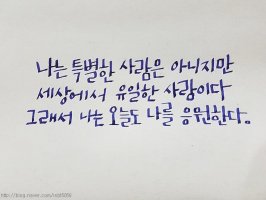 나는 특별한 사람은 아니지만
세상에서 유일한 사람이다
그래서 나는 오늘도 나를 응원한다.